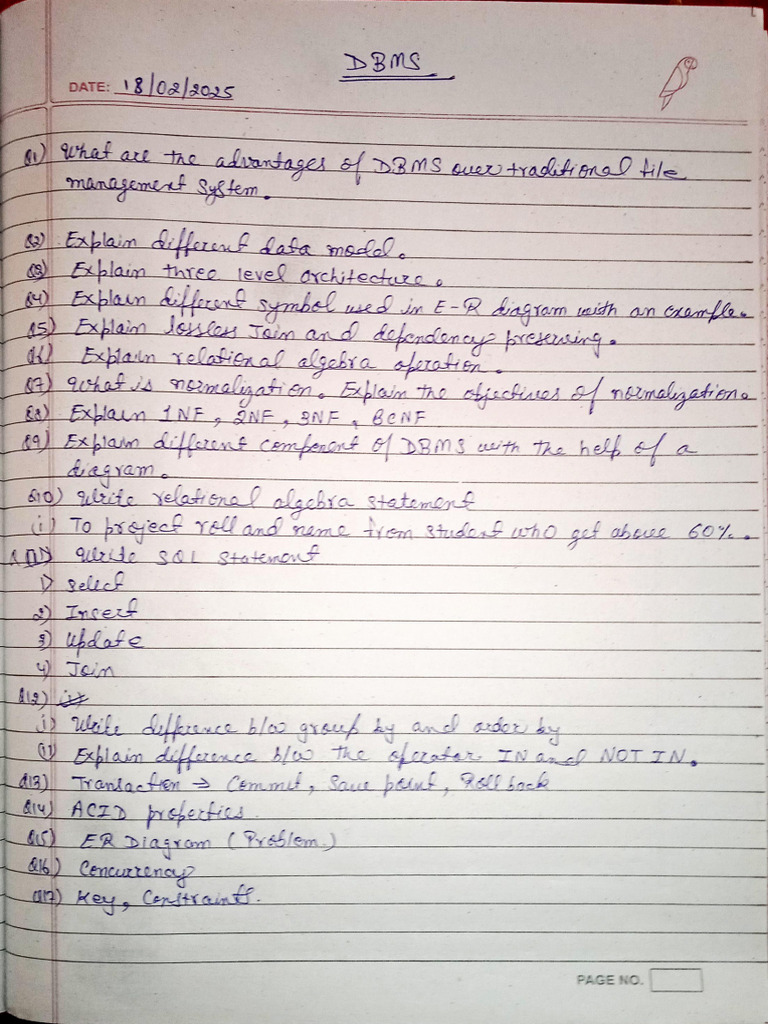 DBMS
DATE: 18/02/2025
Q1) What are the advantages of DBMS over traditional file
management system.
Q2) Explain different data model.
Q3) Explain three level architecture.
Q4) Explain different symbol used in E-R diagram with an example.
Q5) Explain lossless Join and dependency preserving.
Q6) Explain relational algebra operation.
Q7) What is normalization. Explain the objectives of normalization.
Q8) Explain 1NF, 2NF, 3NF, BCNF
Q9) Explain different component of DBMS with the help of a
diagram.
Q10) Write relational algebra statement
(i) To project roll and name from student who get above 60%.
Q11) Write SQL statement
1) Select
2) Insert
3) Update
4) Join
Q12)
i) Write difference b/w group by and order by
(ii) Explain difference b/w the operator IN and NOT IN.
Q13) Transaction → Commit, Save point, Roll back
Q14) ACID properties.
Q15) ER Diagram (Problem.)
Q16) Concurrency
Q17) Key, Constraints.
PAGE NO.